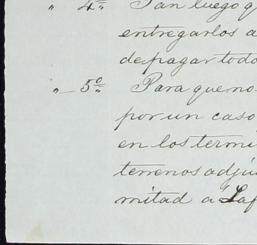 " 4º" Tan luego q
entregarlos a
de pagar todo
" 5º" Para que no
por un caso
en los termi
terrenos adju
mitad a